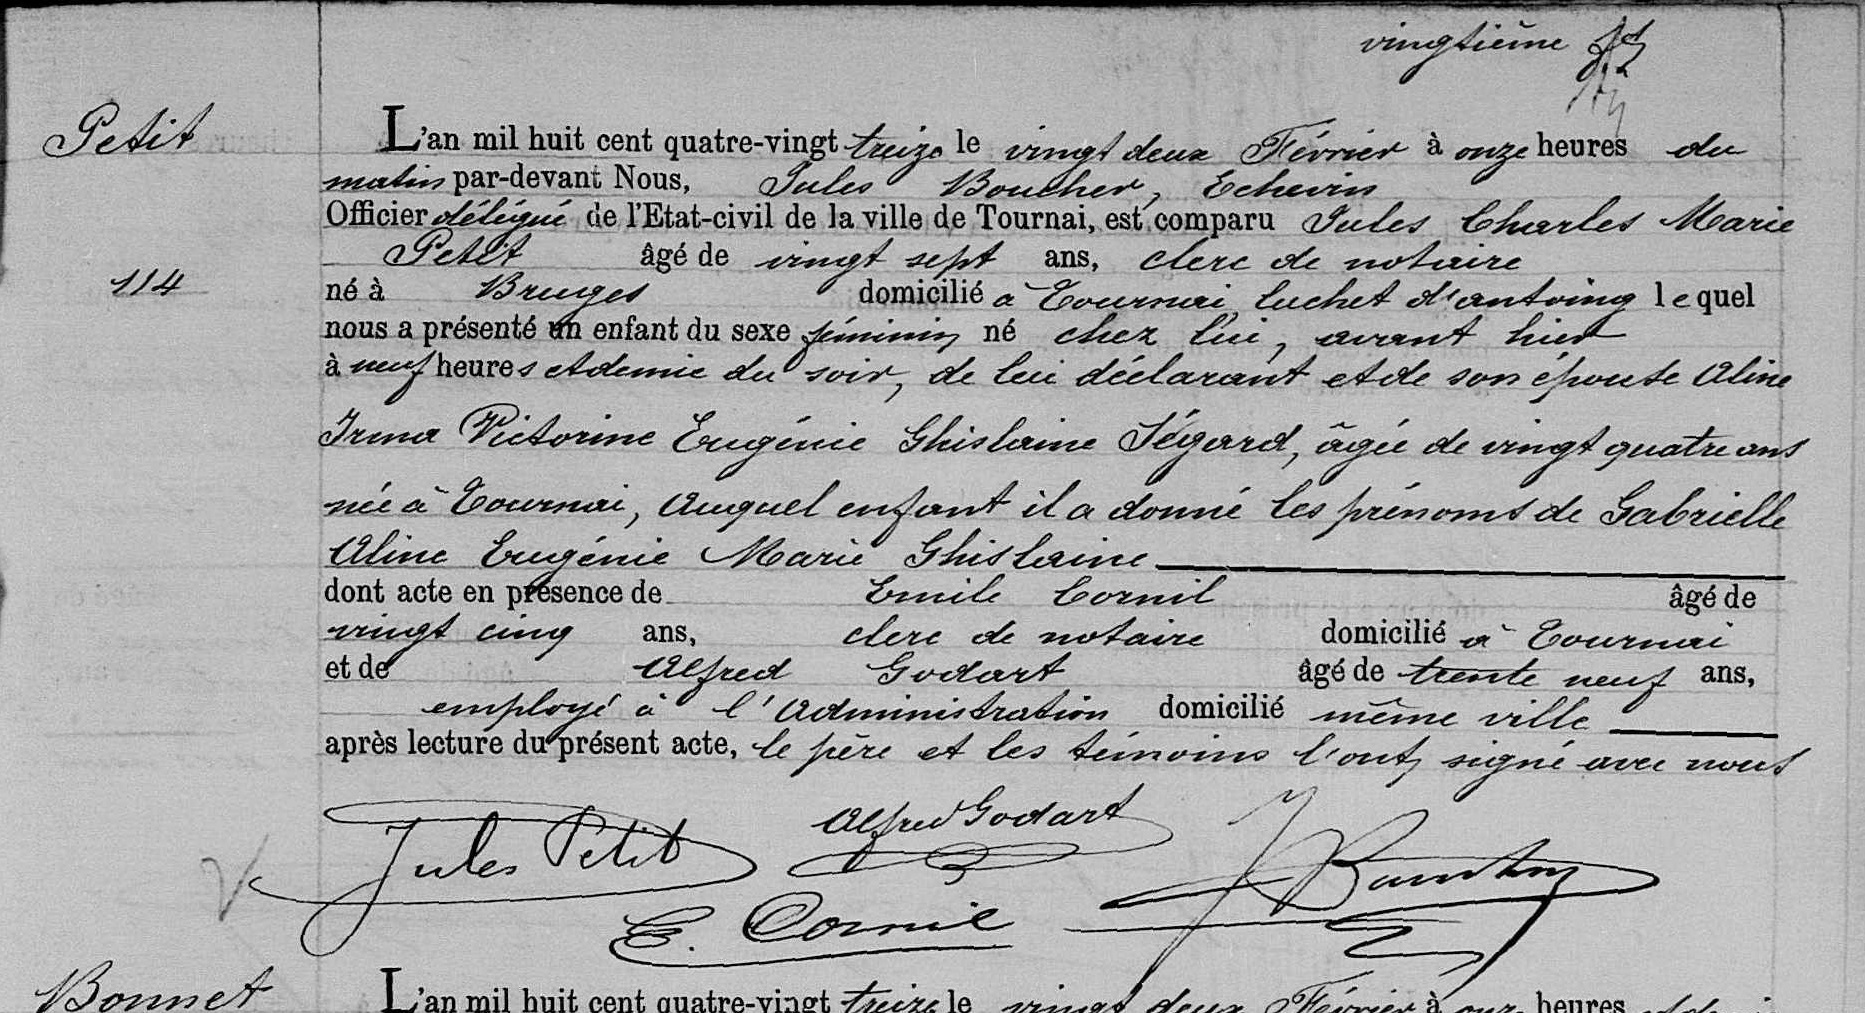 vingtième
Petit
L'an mil huit cent quatre-vingt treize le vingt deux Février à onze heures du
matin par-devant Nous, Jules Boucher, Echevin
Officier délégué de l'Etat-civil de la ville de Tournai, est comparu Jules Charles Marie
Petit âgé de vingt sept ans, clerc de notaire
114
né à Bruges domicilié à Tournai, luchet d'antoing lequel
nous a présenté un enfant du sexe féminin né chez lui, avant hier
à neuf heures et demie du soir, de lui déclarant et de son épouse Aline
Irma Victorine Eugénie Ghislaine Ségard, âgée de vingt quatre ans
née à Tournai, Auquel enfant il a donné les prénoms de Gabrielle
Aline Eugénie Marie Ghislaine
dont acte en présence de Emile Cornil âgé de
vingt cinq ans, clerc de notaire domicilié à Tournai
et de Alfred Godart âgé de trente neuf ans,
employé à l'Administration domicilié même ville
après lecture du présent acte, le père et les témoins l'ont signé avec nous
Jules Petit Alfred Godart
E. Cornil
Bonnet
L'an mil huit cent quatre-vingt treize le vingt deux Février à heures